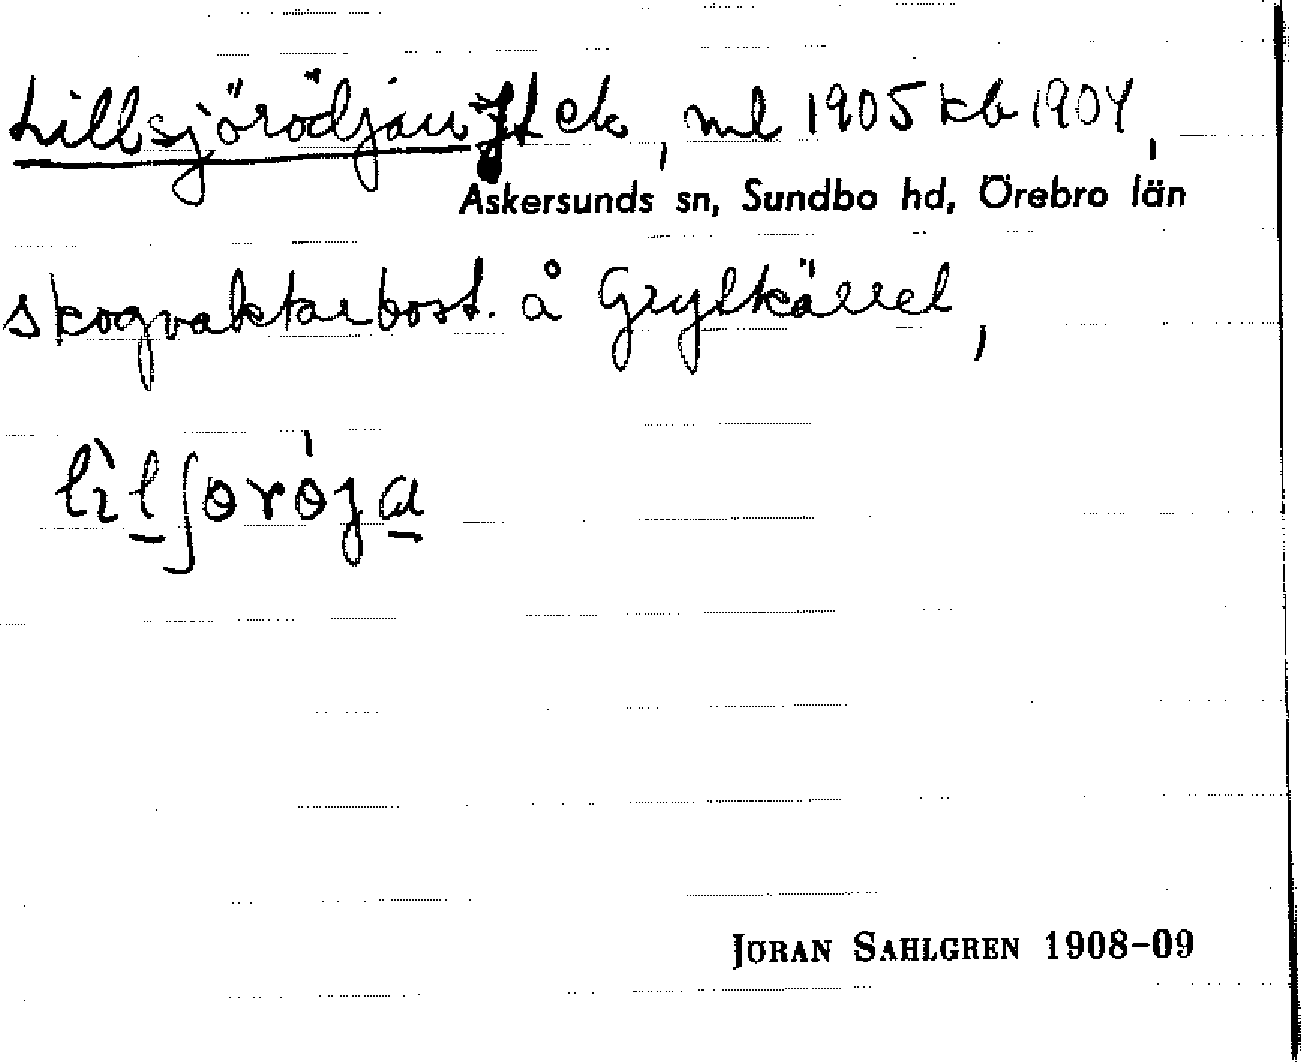 Lillsjörödjan Jl ek, ml 1905 kb 1904,
Askersunds sn, Sundbo hd, Örebro län
skogvaktarbost. å Grytkärret,
JÖRAN SAHLGREN 1908-09